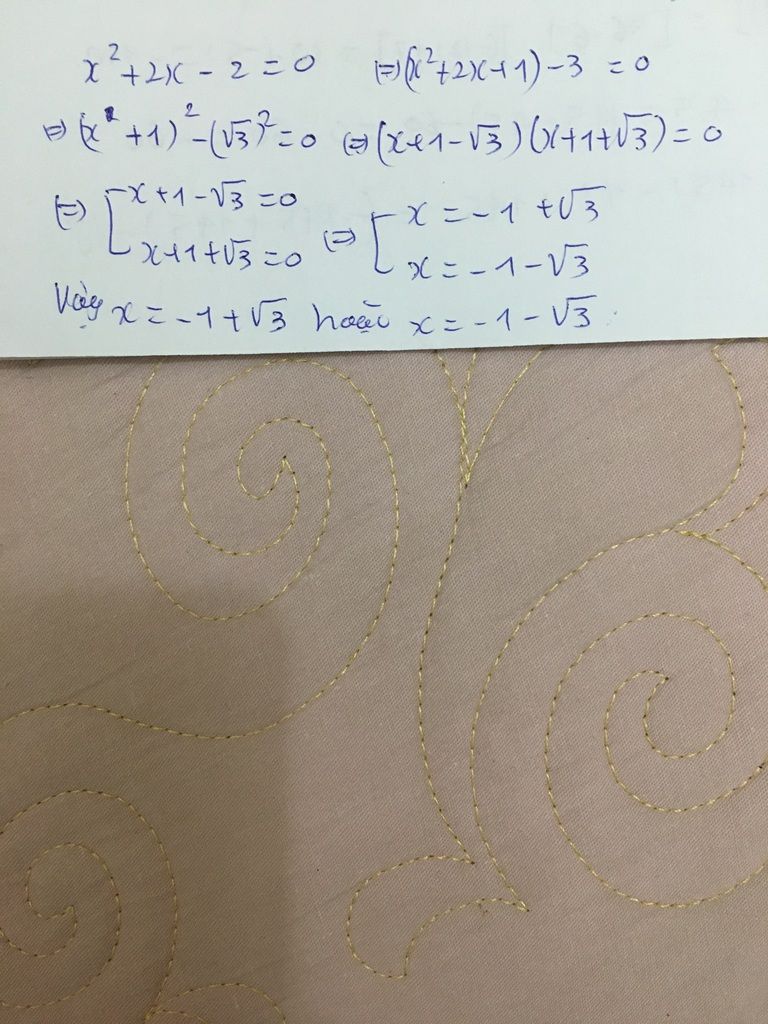 x² + 2x - 2 = 0 (=) (x² + 2x + 1) - 3 = 0
(=) (x + 1)² - (√3)² = 0 (=) (x + 1 - √3)(x + 1 + √3) = 0
(=) [ x + 1 - √3 = 0 (=) [ x = -1 + √3
x + 1 + √3 = 0 x = -1 - √3
Vậy x = -1 + √3 hoặc x = -1 - √3